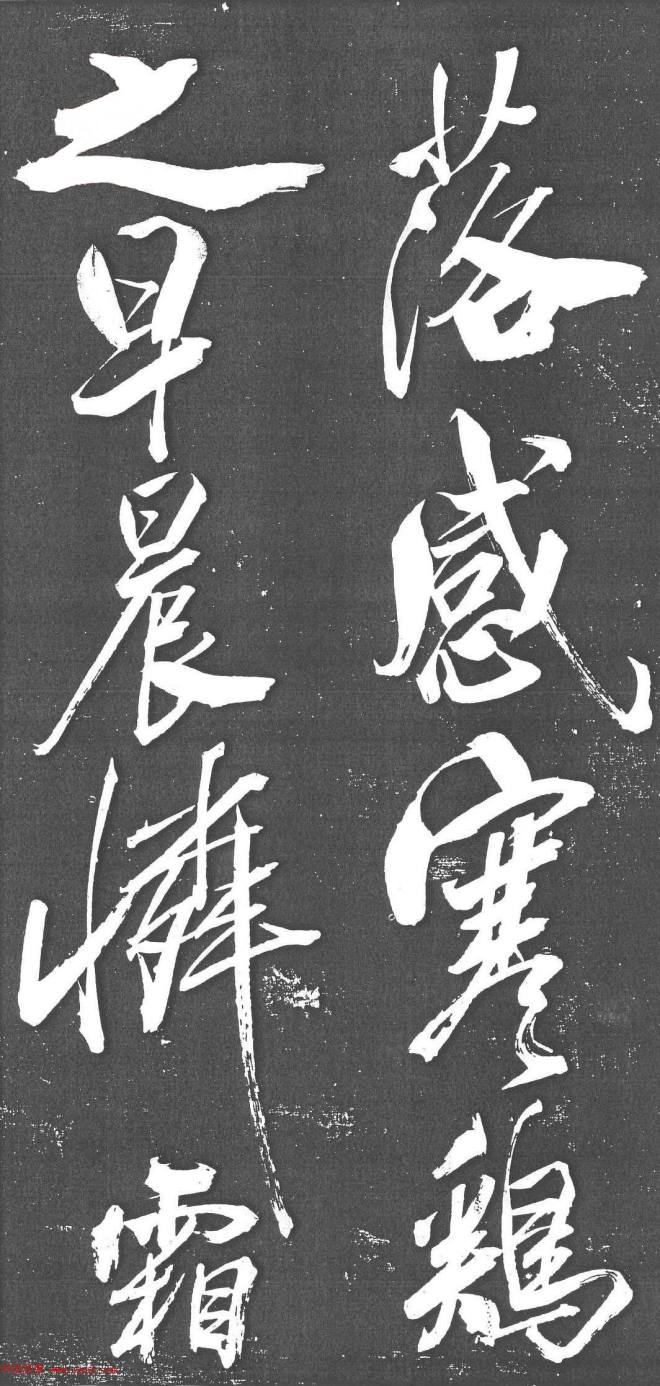 落感寒鷄
之早晨憐霜